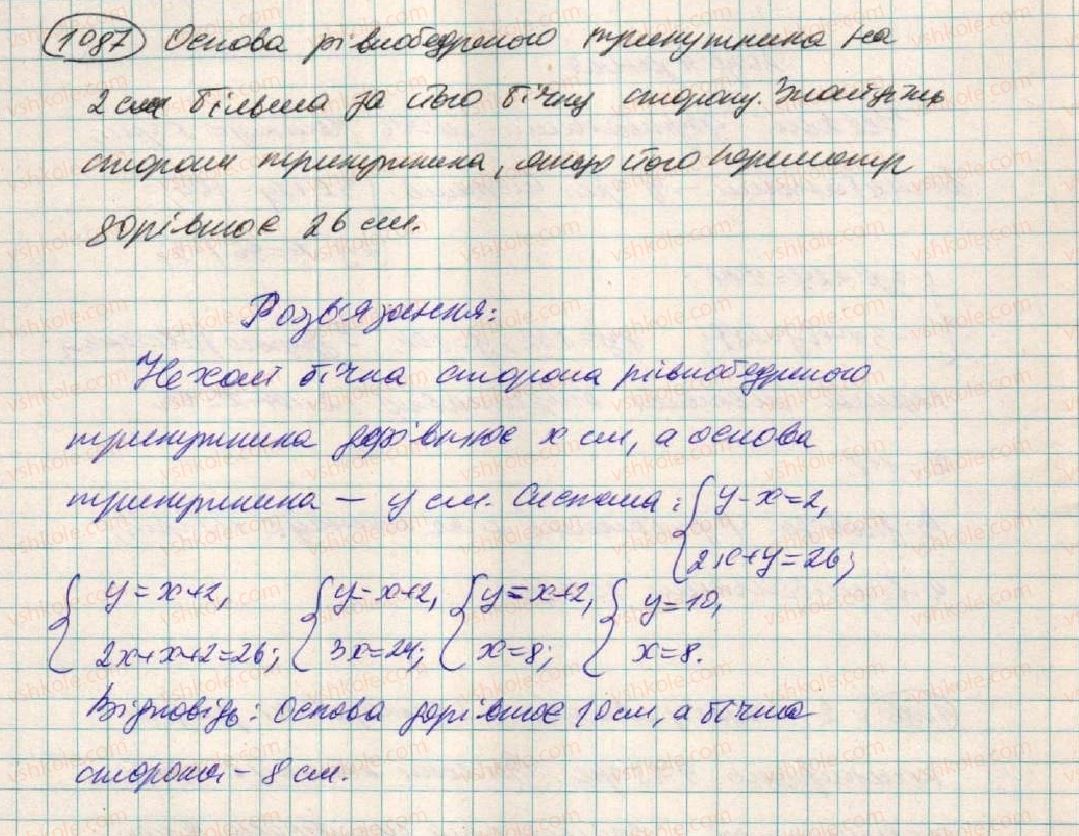 1087 Основа рівнобедреного трикутника на
2 см більша за його бічну сторону. Знайдіть
сторони трикутника, якщо його периметр
дорівнює 26 см.
Розв'язання:
Нехай бічна сторона рівнобедреного
трикутника дорівнює x см, а основа
трикутника – y см. Система: { y-x=2,
2x+y=26;
{ y=x+2, { y=x+2, { y=x+2, { y=10,
2x+x+2=26; 3x=24; x=8; x=8.
Відповідь: основа дорівнює 10 см, а бічна
сторона – 8 см.